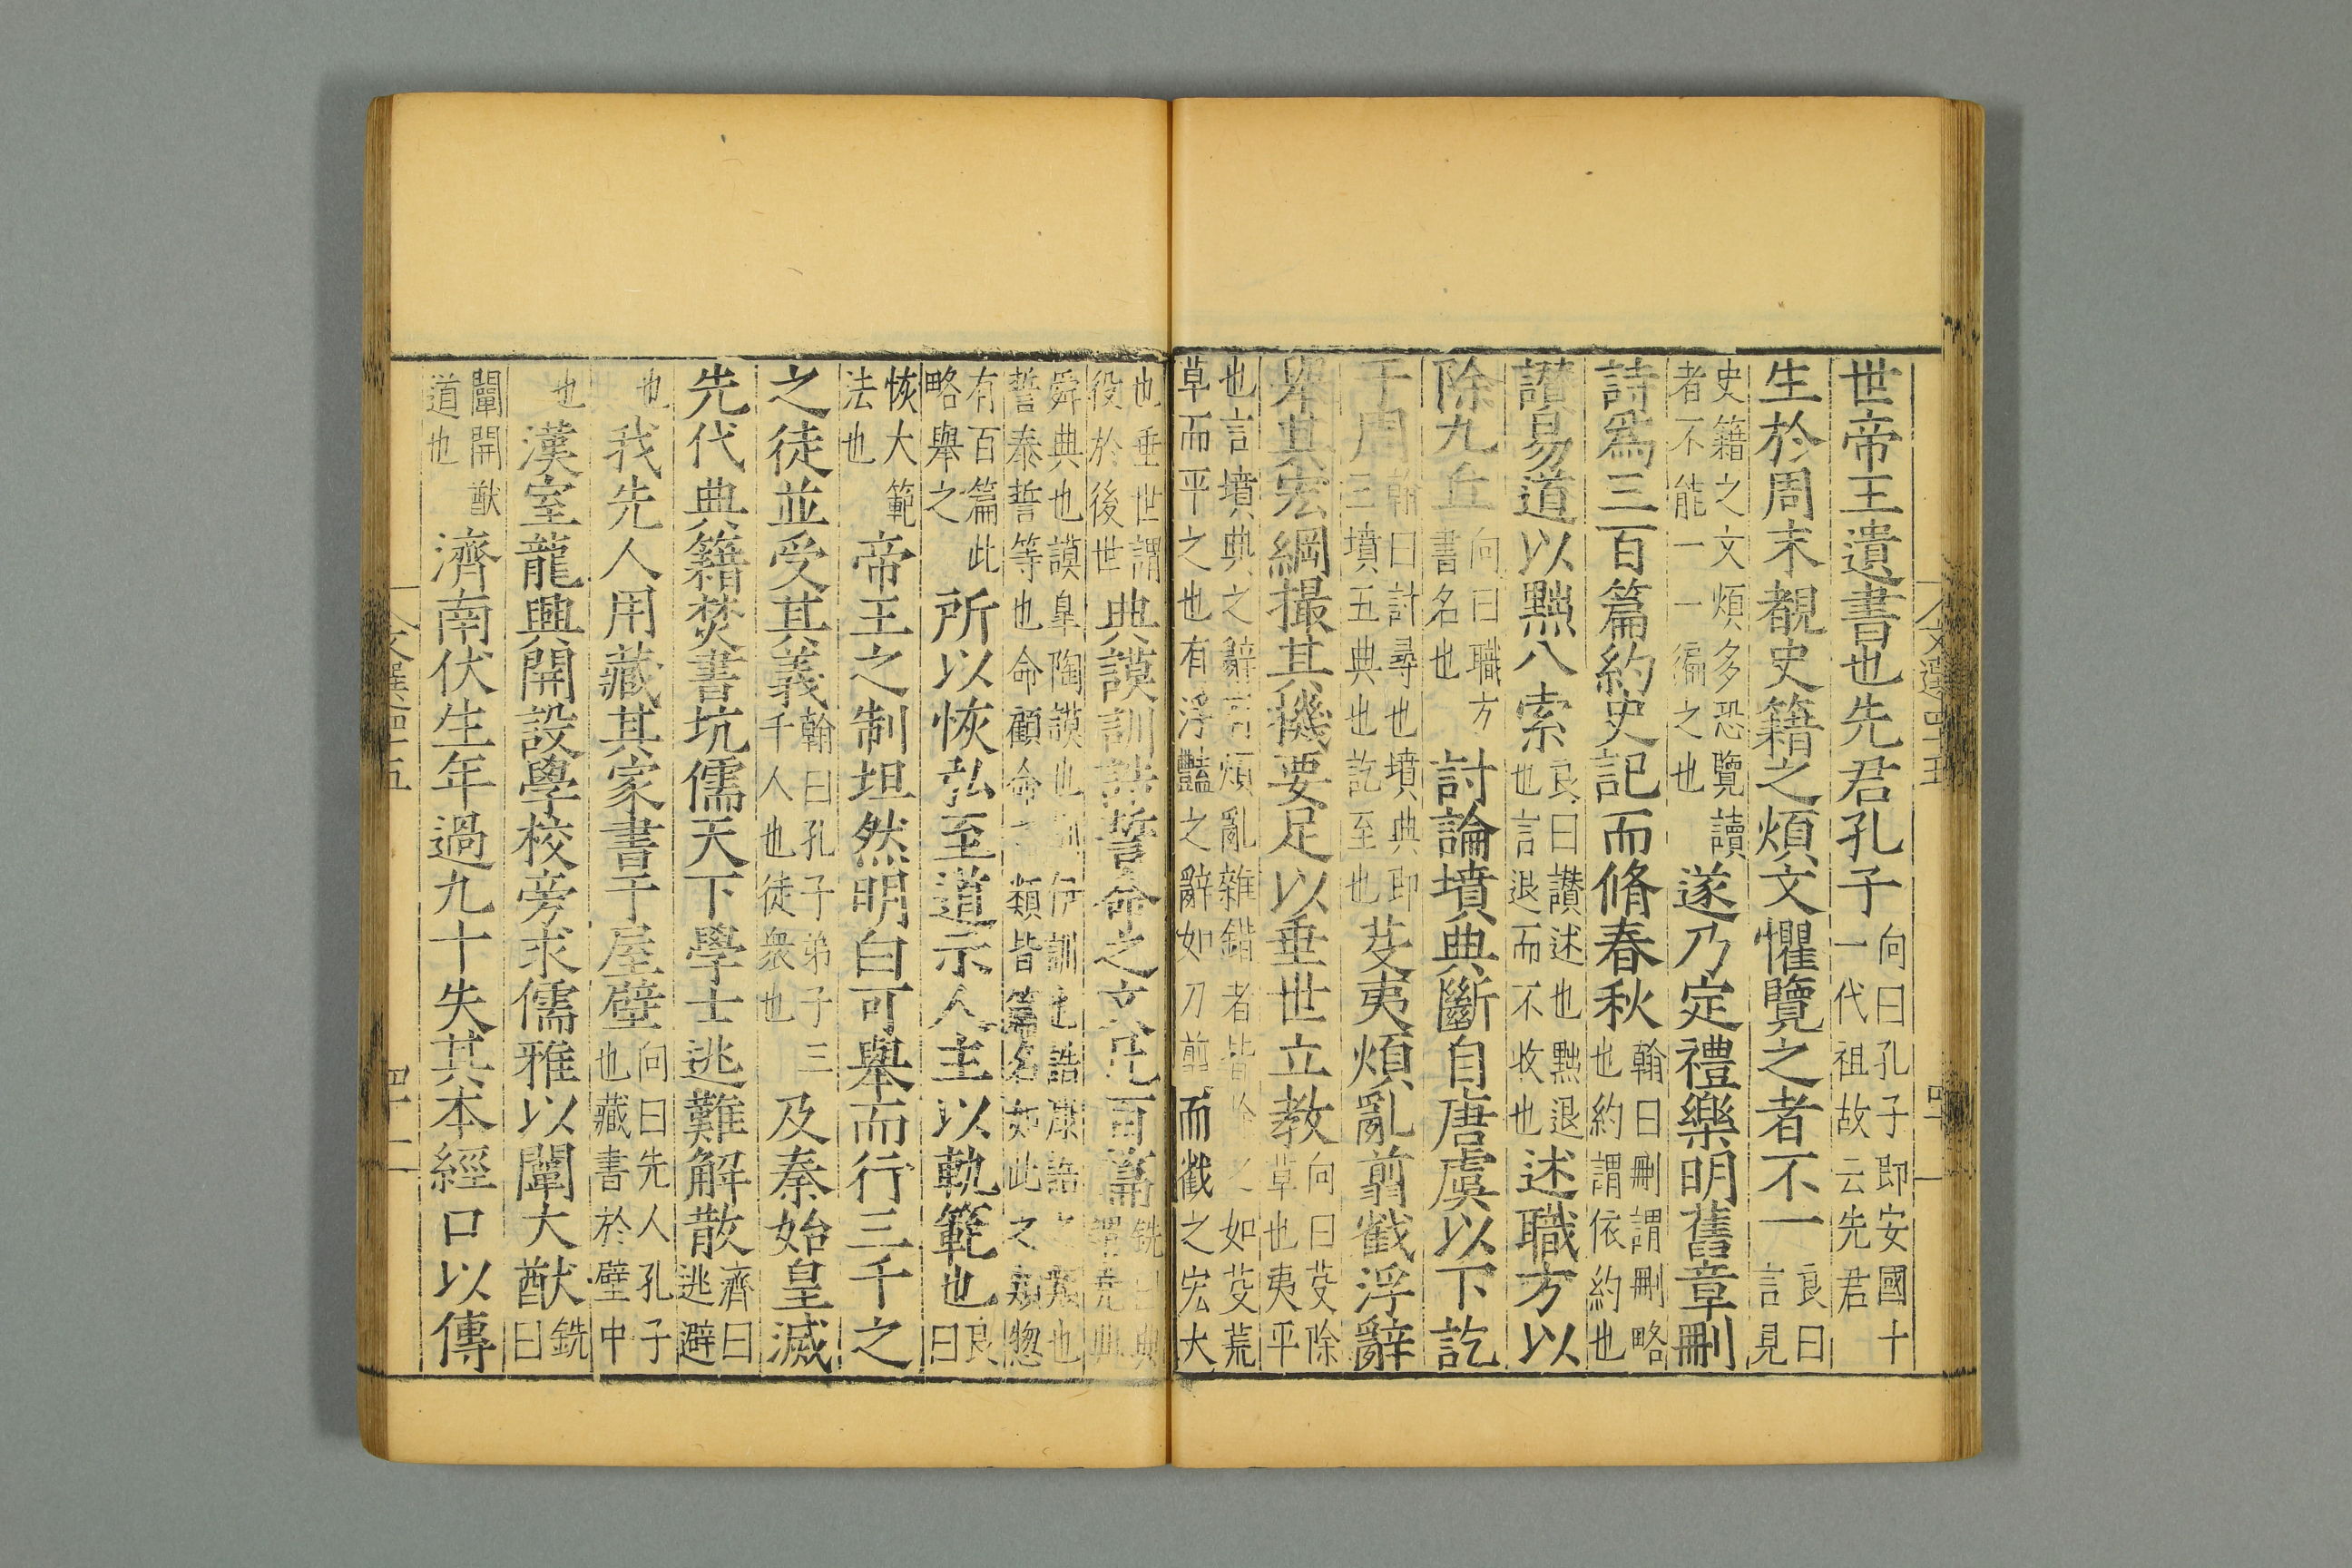 世帝王遺書也先君孔子向曰孔子即安國十一代祖故云先君
生於周末覩史籍之煩文懼覽之者不一良曰言見
史籍之文煩多恐覽讀者不能一一徧之也遂乃定禮樂明舊章刪
詩爲三百篇約史記而脩春秋翰曰刪謂刪略也約謂依約也
讚易道以黜八索良曰讚述也黜退也言退而不收也述職方以
除九丘向曰職方書名也討論墳典斷自唐虞以下訖
于周翰曰討尋也墳典即三墳五典也訖至也芟夷煩亂翦截浮辭
舉其宏綱撮其機要足以垂世立教向曰芟除草也夷平
也言墳典之辭有煩亂雜錯者皆除之如芟荒草而平之也有浮豔之辭如刀剪而截之宏大
也垂世謂役於後世典謨訓誥誓命之文凡百篇銑曰典謂堯典
舜典也謨皐陶謨也訓伊訓也誥康誥之類也誓泰誓等也命顧命之類皆篇名如此之類惣
有百篇此略舉之所以恢弘至道示人主以軌範也良曰
恢大範法也帝王之制坦然明白可舉而行三千之
之徒並受其義翰曰孔子弟子三千人也徒衆也及秦始皇滅
先代典籍焚書坑儒天下學士逃難解散濟曰逃避
也我先人用藏其家書于屋壁向曰先人孔子也藏書於壁中
也漢室龍興開設學校旁求儒雅以闡大猷銑曰
闡開猷道也濟南伏生年過九十失其本經口以傳